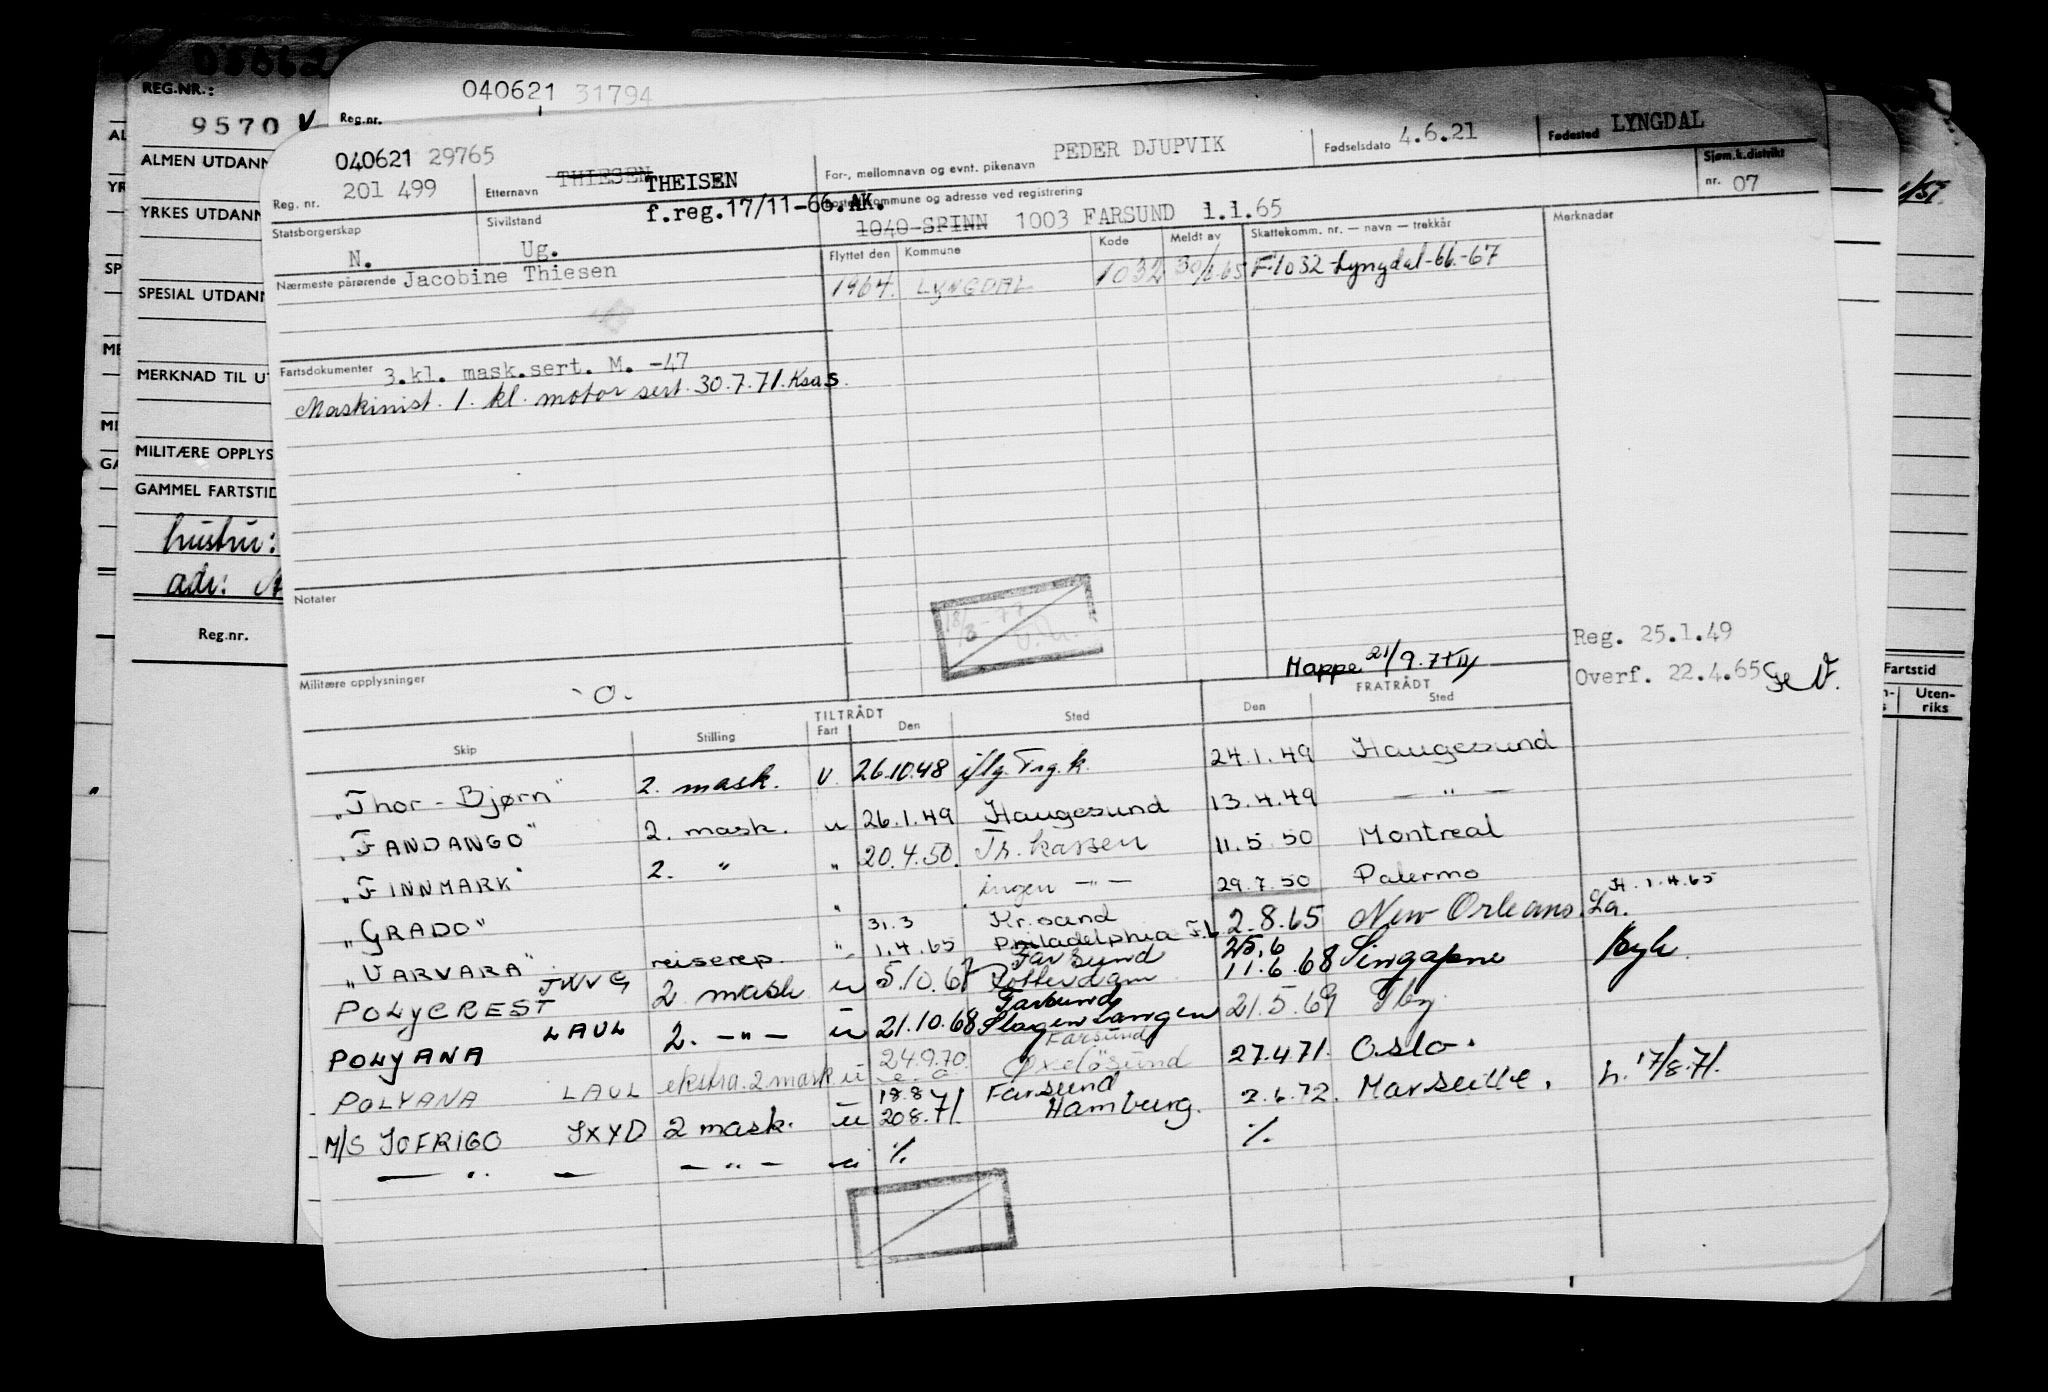 REG.NR.:
9570 V
ALMEN UTDANN
YRKES UTDANN
SPESIAL UTDANN
MERKNAD TIL UT
MILITÆRE OPPLYS
GAMMEL FARTSTID
hustru:
adr:
Reg.nr.
040621 31794
Reg.nr.
040621 29765
Reg. nr. 201 499
Etternavn THIESEN THEISEN
f.reg.17/11-66.AK.
For-, mellomnavn og evnt. pikenavn PEDER DJUPVIK
Fødselsdato 4.6.21
Fødested LYNGDAL
Statsborgerskap N.
Sivilstand Ug.
kommune og adresse ved registrering
1040 SPINN 1003 FARSUND 1.1.65
Sjøm.k.distrikt
nr. 07
Nærmeste pårørende Jacobine Thiesen
Flyttet den Kommune Kode Meldt av Skattekomm. nr. — navn — trekkår Merknader
1964. LYNGDAL 1032 F-1032-Lyngdal-66-67
Fartsdokumenter 3.kl. mask.sert. M. -47
Maskinist. 1. kl. motor sert. 30.7.71. Ksas.
Notater
Militære opplysninger
-0-
Mappe 21/9.7
Reg. 25.1.49
Overf. 22.4.65
TILTRÅDT FRATRÅDT
Skip Stilling Fart Den Sted Den Sted
"Thor-Bjørn" 2. mask. U. 26.10.48 iflg. Frg.k. 24.1.49 Haugesund
"FANDANGO" 2. mask. u 26.1.49 Haugesund 13.4.49 — " —
"FINNMARK" 2. " " 20.4.50. Tr. kassen 11.5.50 Montreal
"GRADO" " ingen — " — 29.7.50 Palermo
H. 1.4.65
31.3 Kr.sand
"VARVARA" reiserep. " 1.4.65 Philadelphia 2.8.65 New Orleans. La.
Farsund 25.6
POLYCREST JWVG 2 mask u 5.10.67 Rotterdam 11.6.68 Singapore
Farsund
POLYANA LAUL 2. — " — u 21.10.68 Slagentangen 21.5.69 Tbg.
Farsund
POLYANA LAUL ekstra. 2 mask u 24.9.70. Oxelösund 27.4.71. Oslo.
18.8 Farsund
M/S JOFRIGO JXYD 2 mask. u 20.8.71. Hamburg. 2.6.72. Marseille. h. 17/8.71.
— " — — " — u % %
Fartstid
Uten-
riks